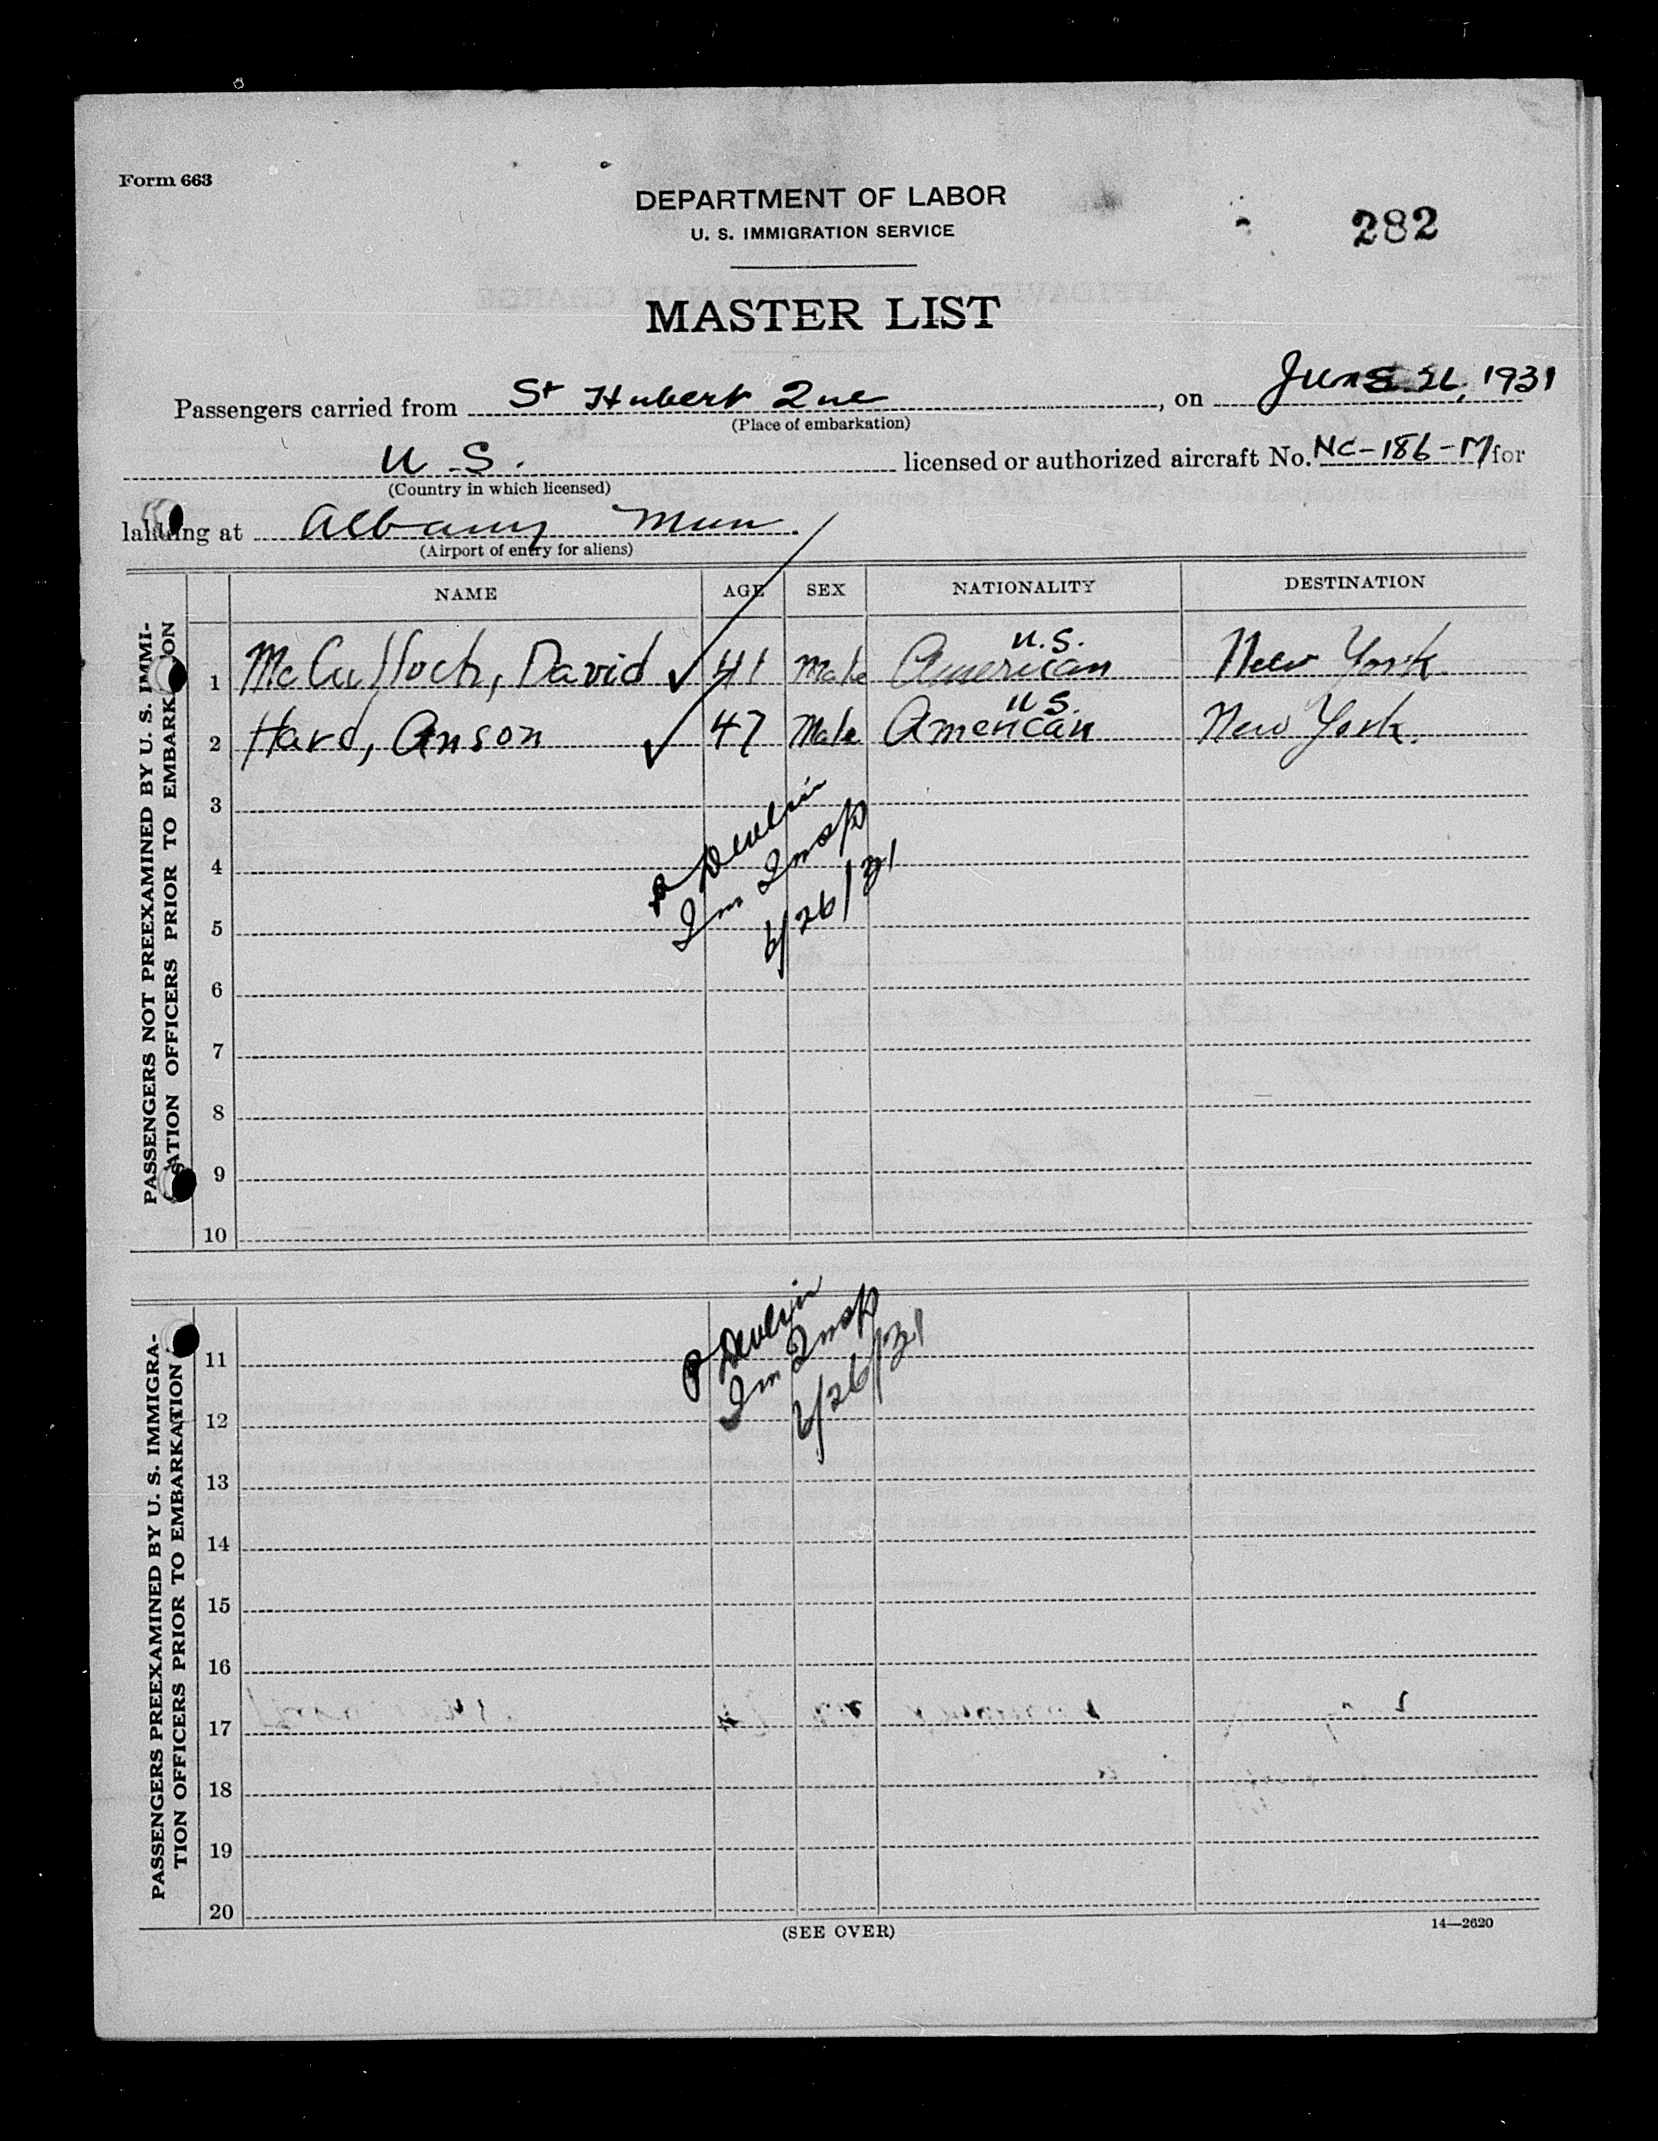 Form 663
DEPARTMENT OF LABOR
U. S. IMMIGRATION SERVICE
282
MASTER LIST
Passengers carried from St Hubert Que, on June 26, 1931
(Place of embarkation)
U.S. licensed or authorized aircraft No. NC-186-M for
(Country in which licensed)
landing at Albany Mun.
(Airport of entry for aliens)
NAME AGE SEX NATIONALITY DESTINATION
PASSENGERS NOT PREEXAMINED BY U. S. IMMI-
GRATION OFFICERS PRIOR TO EMBARKATION
1 McCulloch, David ✓ 41 Male U.S. American New York.
2 Hard, Anson ✓ 47 Male U.S. American New York.
3
4
5
P Devlin
Im Insp
6/26/31
6
7
8
9
10
PASSENGERS PREEXAMINED BY U. S. IMMIGRA-
TION OFFICERS PRIOR TO EMBARKATION
P Devlin
Im Insp
6/26/31
11
12
13
14
15
16
17
18
19
20
(SEE OVER)
14—2620